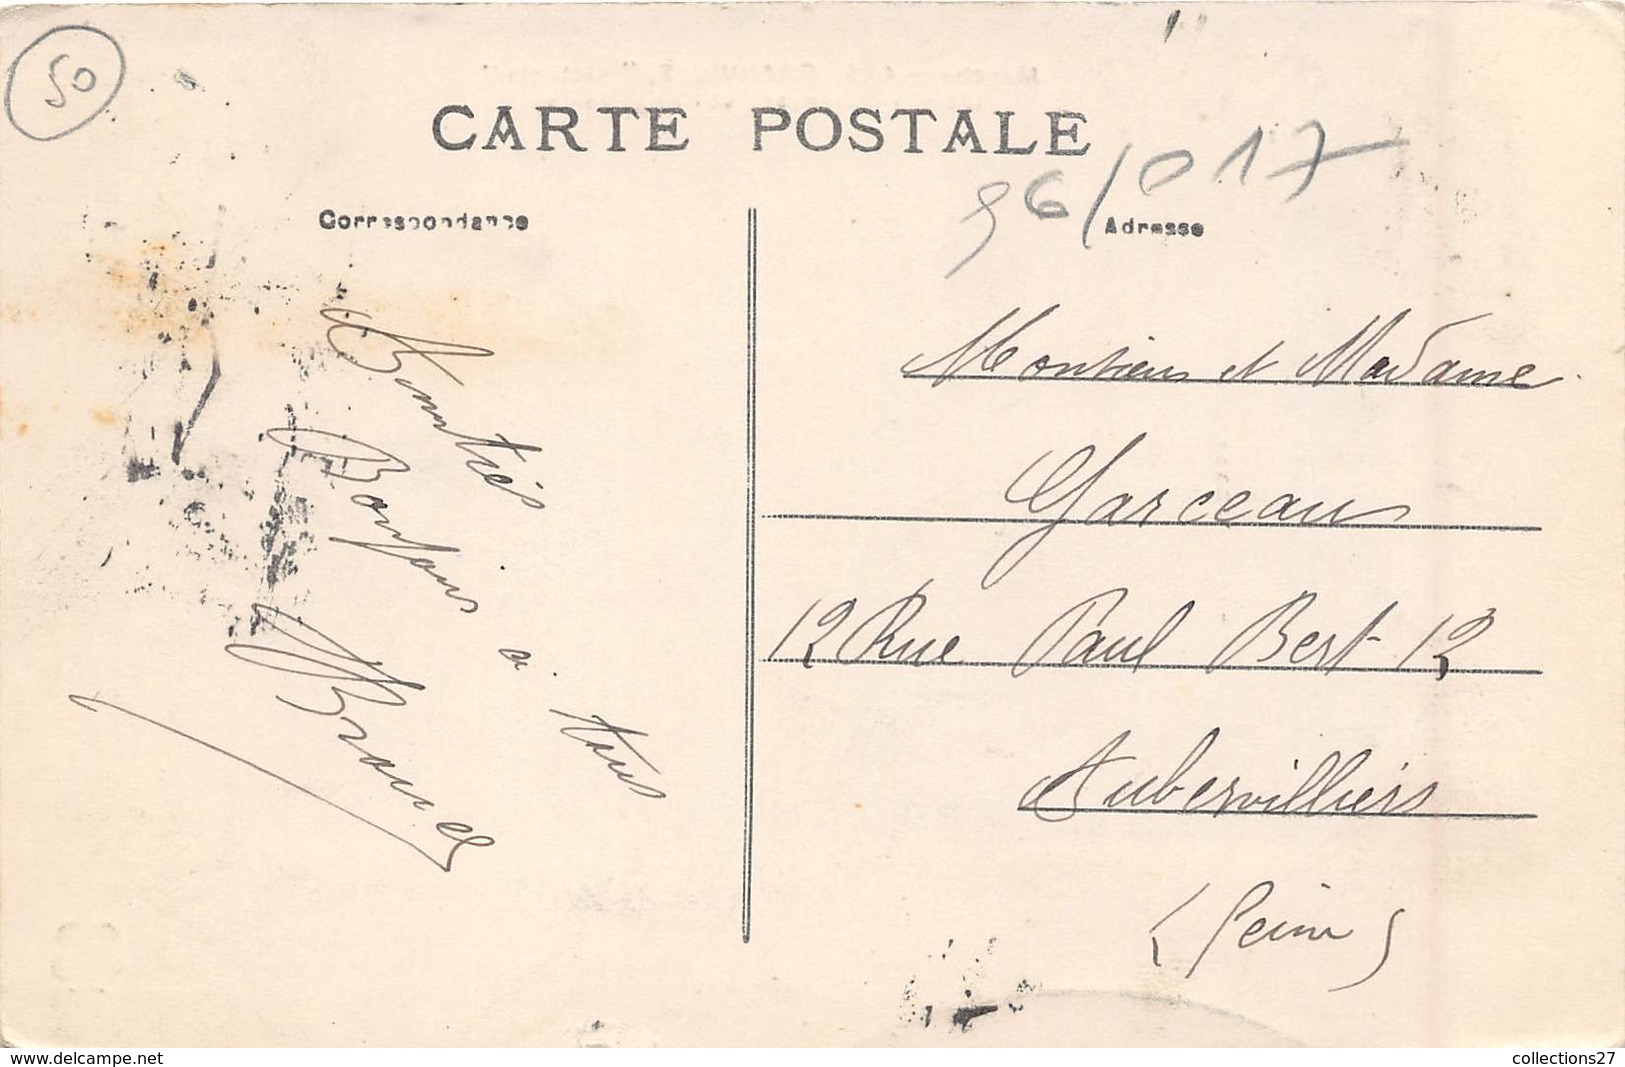 50
CARTE POSTALE
96/017
Correspondance
Adresse
Amitiés
Bonjour à tous
Monsieur et Madame
Garceau
12 Rue Paul Bert 12
Aubervilliers
(Seine)
www.delcampe.net
collections27